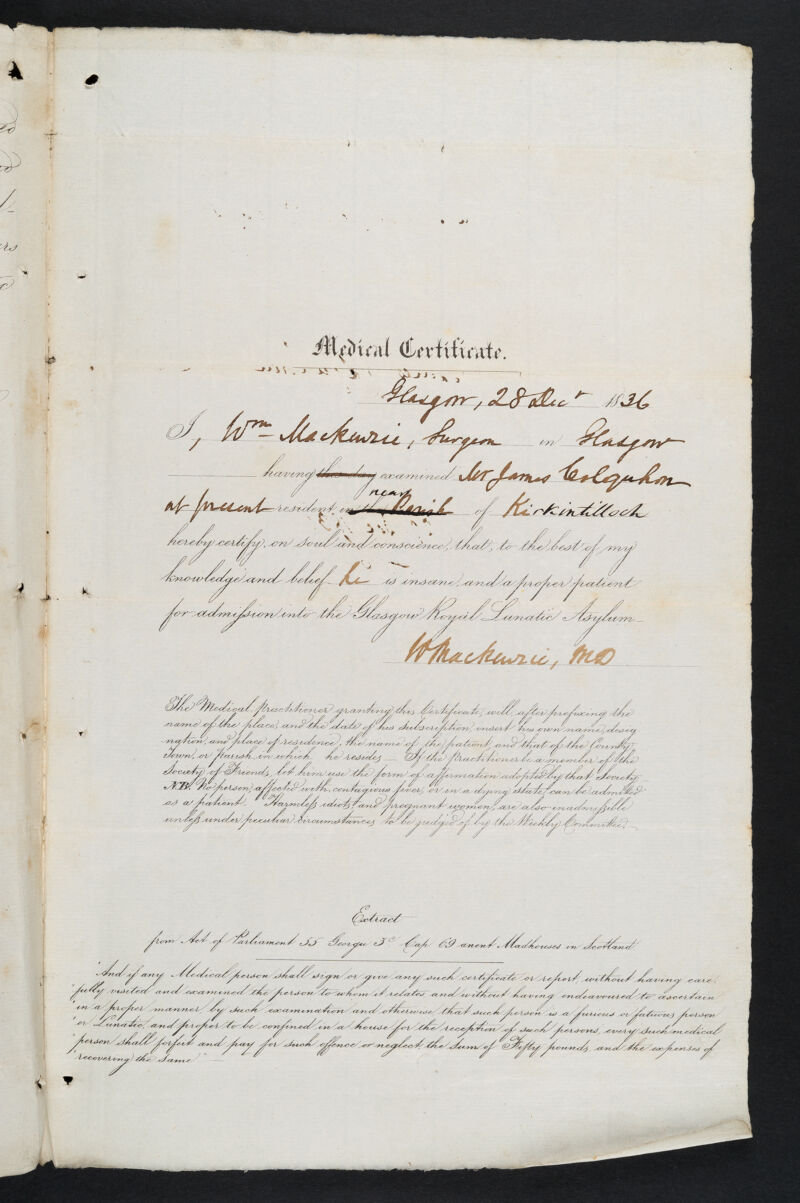 Medical Certificate.
Glasgow, 28 Decr 1836
I, Wm Mackenzie, Surgeon in Glasgow
having this day examined Mr James Colquhon
near
at present resident in the Parish of Kirkintilloch
hereby certify, on soul and conscience, that, to the best of my
knowledge and belief he is insane, and a proper patient
for admission into the Glasgow Royal Lunatic Asylum
W Mackenzie, MD
The Medical practitioner granting this Certificate, will, after prefixing the
name of the place, and the date of his subscription, insert his own name, desig
nation, and place of residence, the name of the patient, and that of the County,
Town, or Parish in which he resides – If the practitioner be a member of the
Society of Friends, let him use the form of affirmation adopted by that Society –
NB. No person affected with contagious fever, or in a dying state, can be admitted
as a patient Harmless idiots, and pregnant women, are also inadmissible
unless under peculiar circumstances, to be judged of by the Weekly Committee.
Extract
from Act of Parliament 55 George 3d Cap. 69 anent Madhouses in Scotland
"And if any Medical person shall sign or give any such certificate or report, without having care
"fully visited and examined the person to whom it relates and without having endeavoured to ascertain
"in a proper manner by such examination and otherwise that such person is a furious or fatuous person
"or Lunatic, and proper to be confined in a house for the reception of such persons, every such medical
"person shall forfeit and pay for such offence or neglect the Sum of Fifty pounds, and the expenses of
"recovering the same"